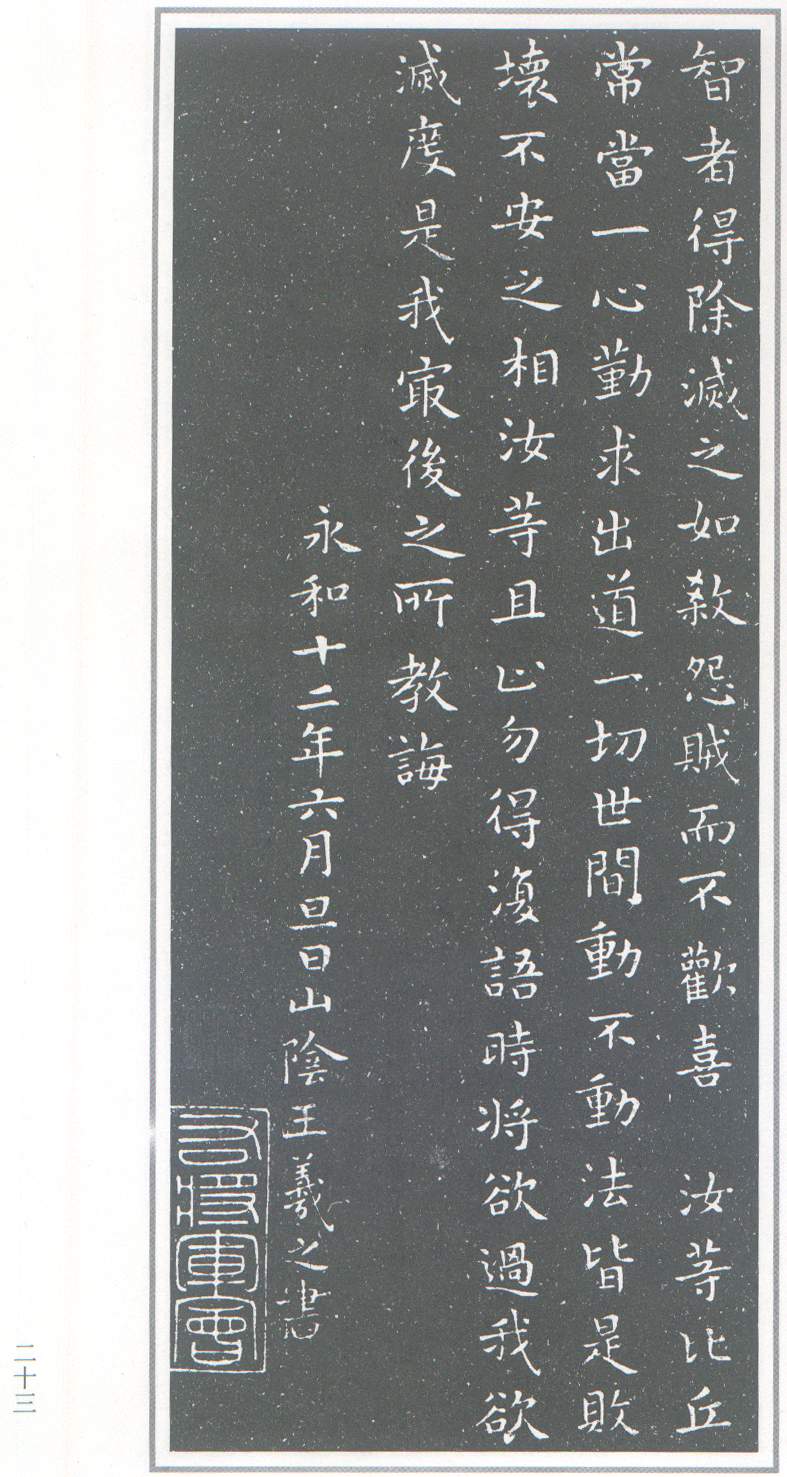 智者得除滅之如殺怨賊而不歡喜　汝等比丘
常當一心勤求出道一切世間動不動法皆是敗
壞不安之相汝等且止勿得復語時將欲過我欲
滅度是我最後之所教誨
永和十二年六月旦日山陰王羲之書
右將軍會
二十三